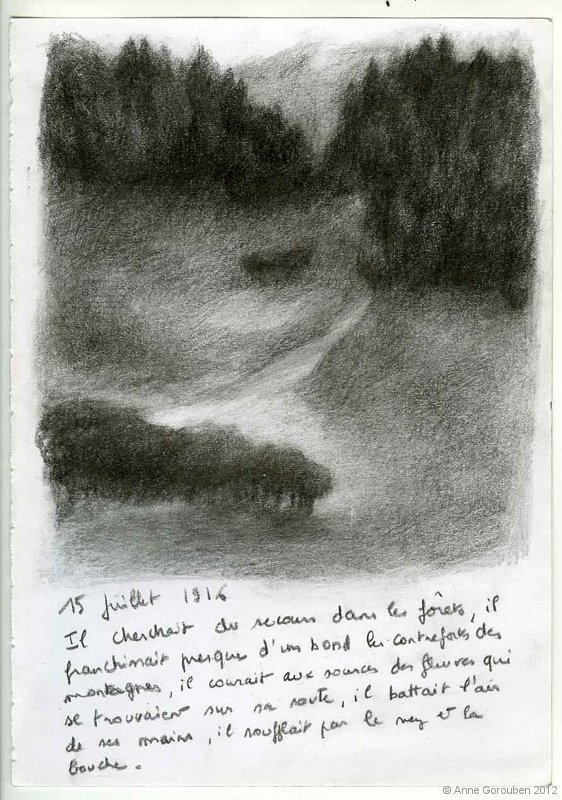 15 juillet 1916
Il cherchait du secours dans les forêts, il
franchissait presque d'un bond les contreforts des
montagnes, il courait aux sources des fleuves qui
se trouvaient sur sa route, il battait l'air
de ses mains, il soufflait par le nez et la
bouche.
© Anne Gorouben 2012